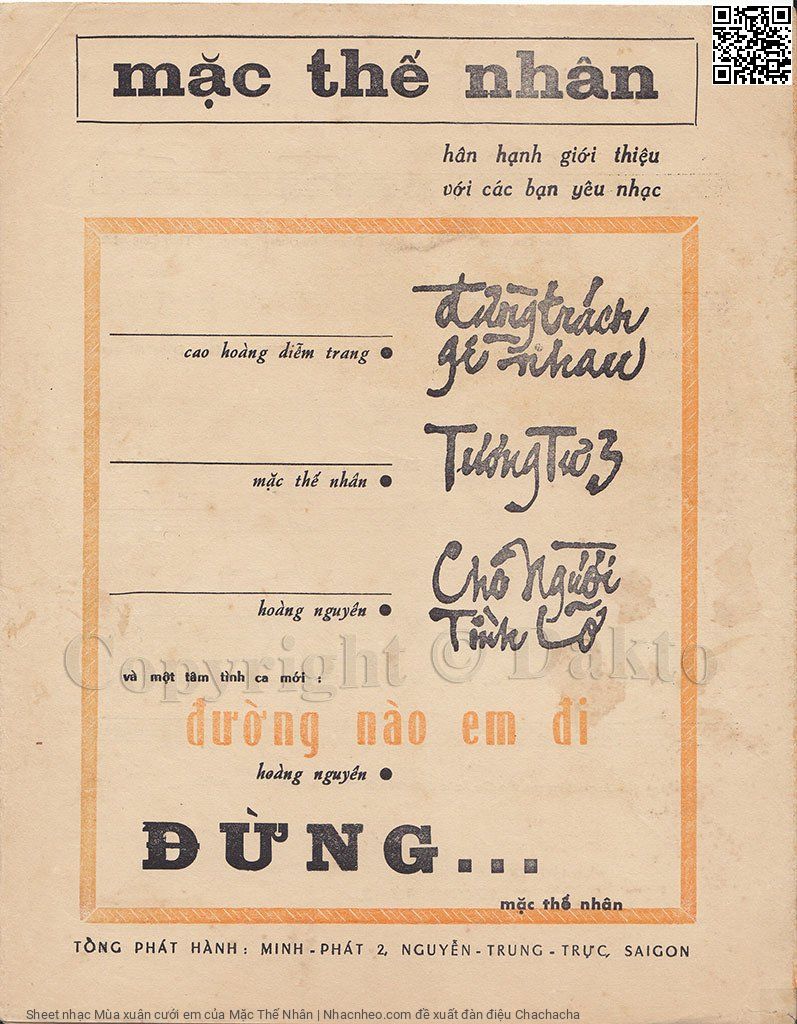 mặc thế nhân
hân hạnh giới thiệu
với các bạn yêu nhạc
đừng trách
gì nhau
cao hoàng diễm trang ●
Tương Tư 3
mặc thế nhân ●
Cho Người
Tình Lỡ
hoàng nguyên ●
Copyright © Dakto
và một tâm tình ca mới :
đường nào em đi
hoàng nguyên ●
ĐỪNG...
mặc thế nhân
TỔNG PHÁT HÀNH : MINH - PHÁT 2, NGUYỄN - TRUNG - TRỰC, SAIGON
Sheet nhạc Mùa xuân cưới em của Mặc Thế Nhân | Nhacnheo.com đề xuất đàn điệu Chachacha